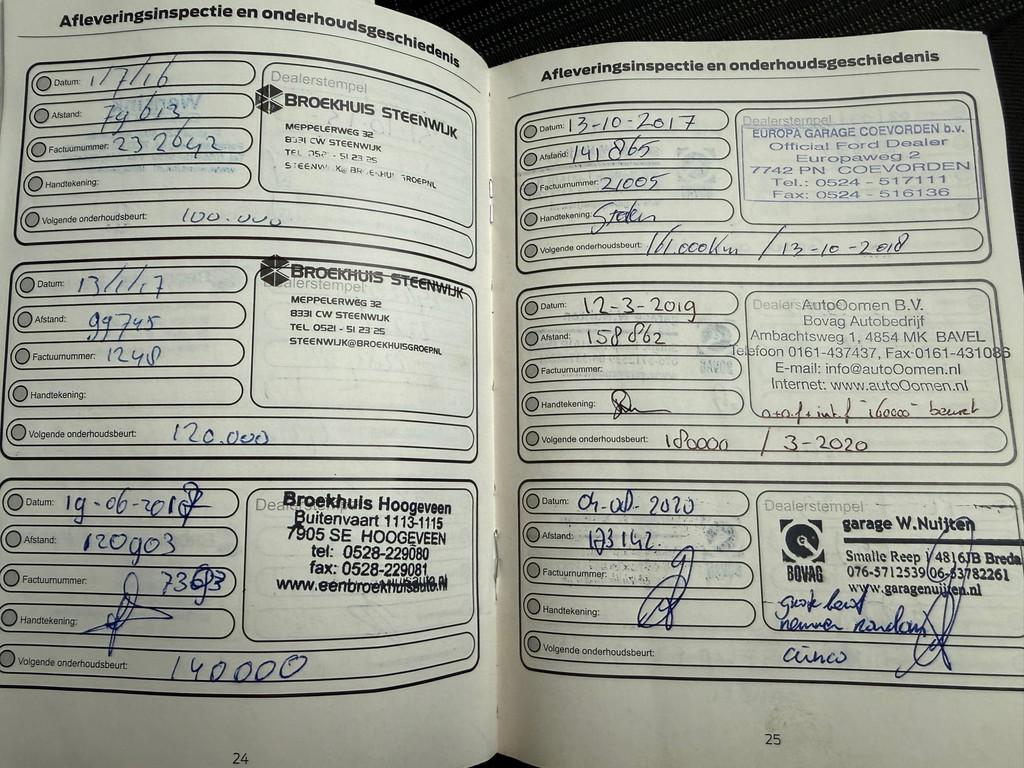 Afleveringsinspectie en onderhoudsgeschiedenis
Datum: 1/7/16
Afstand: 79613
Factuurnummer: 232642
Handtekening:
Volgende onderhoudsbeurt: 100.000
Dealerstempel
BROEKHUIS STEENWIJK
MEPPELERWEG 32
8331 CW STEENWIJK
TEL 0521 - 51 23 25
Datum: 13/1/17
Afstand: 99745
Factuurnummer: 1248
Handtekening:
Volgende onderhoudsbeurt: 120.000
Dealerstempel
BROEKHUIS STEENWIJK
MEPPELERWEG 32
8331 CW STEENWIJK
TEL 0521 - 51 23 25
STEENWIJK@BROEKHUISGROEPNL
Datum: 19-06-201
Afstand: 120903
Factuurnummer:
Handtekening:
Volgende onderhoudsbeurt: 140000
Broekhuis Hoogeveen
Buitenvaart 1113-1115
7905 SE HOOGEVEEN
tel: 0528-229080
fax: 0528-229081
www.eenbroekhuisauto.nl
24
Afleveringsinspectie en onderhoudsgeschiedenis
Datum: 13-10-2017
Afstand: 141865
Factuurnummer: 21005
Handtekening:
Volgende onderhoudsbeurt: 161.000Km / 13-10-2018
Dealerstempel
EUROPA GARAGE COEVORDEN b.v.
Official Ford Dealer
Europaweg 2
7742 PN COEVORDEN
Tel.: 0524 - 517111
Fax: 0524 - 516136
Datum: 12-3-2019
Afstand: 158862
Factuurnummer:
Handtekening:
Volgende onderhoudsbeurt: 180000 / 3-2020
AutoOomen B.V.
Bovag Autobedrijf
Ambachtsweg 1, 4854 MK BAVEL
Telefoon 0161-437437, Fax 0161-431086
E-mail: info@autoOomen.nl
Internet: www.autoOomen.nl
o+o.f + int.f "160000" beurt
Datum: 2020
Afstand: 173142
Factuurnummer:
Handtekening:
Volgende onderhoudsbeurt:
Dealerstempel
BOVAG
garage W.Nuijten
Smalle Reep 1 4816JB Breda
076-5712539 06-53782261
www.garagenuijten.nl
grote beurt
remmen rondom
airco
25